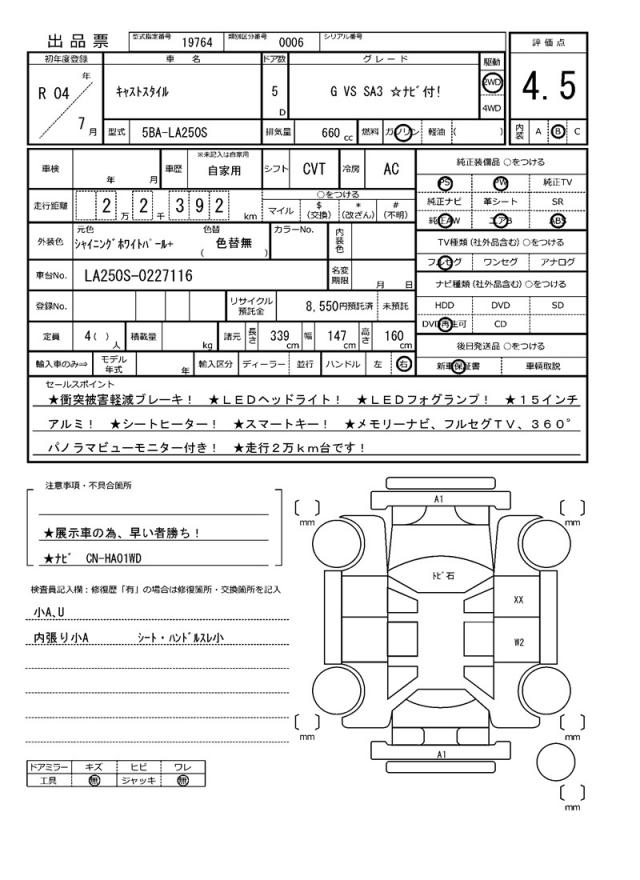 出品票 型式指定番号 19764 類別区分番号 0006 シリアル番号
評価点
初年度登録 車名 ドア数 グレード 駆動
R 04 年 7 月 ｷｬｽﾄｽﾀｲﾙ 5 D G VS SA3 ☆ﾅﾋﾞ付! 2WD 4WD
4.5
型式 5BA-LA250S 排気量 660 cc 燃料 ガソリン 軽油 ( )
内装 A B C
車検 年 月 車歴 ※未記入は自家用 自家用 シフト CVT 冷房 AC
走行距離 2 万 2 千 3 9 2 km
○をつける
マイル $ (交換) * (改ざん) # (不明)
外装色 元色 ｼｬｲﾆﾝｸﾞﾎﾜｲﾄﾊﾟｰﾙ+ 色替 ( 色替無 ) カラーNo. 内装色
車台No. LA250S-0227116 名変期限 月 日
登録No. リサイクル預託金 8,550円預託済 未預託
定員 4( ) 人 積載量 kg 諸元 長さ 339 cm 幅 147 cm 高さ 160 cm
輸入車のみ⇒ モデル年式 年 輸入区分 ディーラー 並行 ハンドル 左 右
純正装備品 ○をつける
PS PW 純正TV
純正ナビ 革シート SR
純正AW エアB ABS
TV種類(社外品含む)○をつける
フルセグ ワンセグ アナログ
ナビ種類(社外品含む)○をつける
HDD DVD SD
DVD再生可 CD
後日発送品 ○をつける
新車保証書 車輌取説
セールスポイント
★衝突被害軽減ブレーキ! ★LEDヘッドライト! ★LEDフォグランプ! ★15インチ
アルミ! ★シートヒーター! ★スマートキー! ★メモリーナビ、フルセグTV、360°
パノラマビューモニター付き! ★走行2万km台です!
注意事項・不具合箇所
★展示車の為、早い者勝ち!
★ﾅﾋﾞ CN-HA01WD
検査員記入欄：修復歴「有」の場合は修復箇所・交換箇所を記入
小A、U
内張り小A ｼｰﾄ・ﾊﾝﾄﾞﾙｽﾚ小
ドアミラー キズ ヒビ ワレ
工具 無 ジャッキ 無
A1
[ ] mm
[ ] mm
ﾄﾋﾞ石
XX
W2
[ ] mm
[ ] mm
A1
[ ] mm